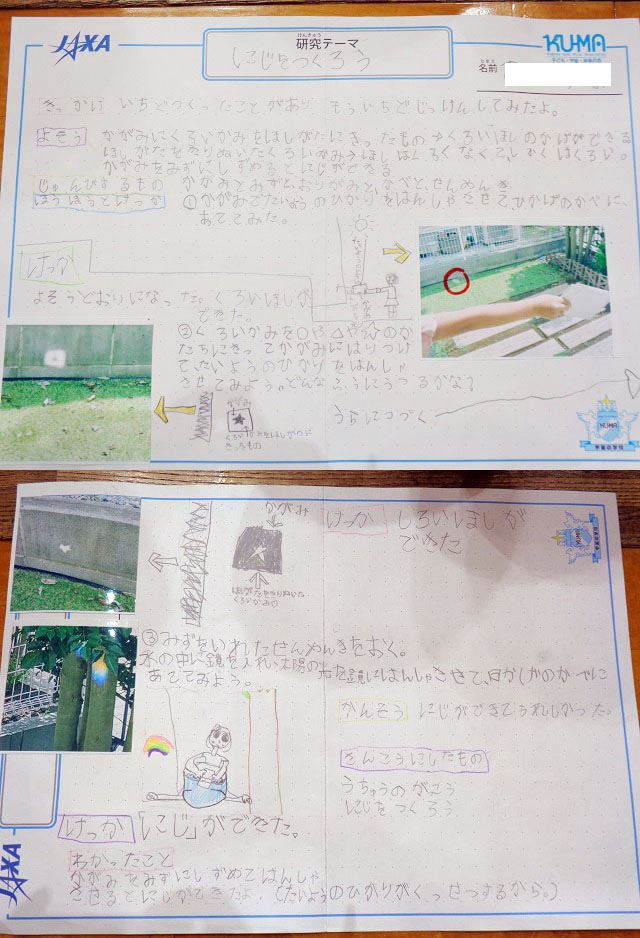 JAXA
けんきゅう
研究テーマ
にじをつくろう
KU-MA
なまえ
名前
きっかけ いちどつくったことがあり もういちどじっけんしてみたよ。
よそう かがみにくろいかみをほしがたにきったもの→くろいほしのかげができる
かがみをみずにしずめるとにじができる
じゅんびするもの かがみとみずと、おりがみと、かべと、せんめんき
ほうほうとけっか ①かがみでたいようのひかりをはんしゃさせて、ひかげのかべに、
あててみた。
けっか
よそうどおりになった。くろいほしが
できた。
②くろいかみを○や△や☆のか
たちにきってかがみにはりつけ
て、たいようのひかりをはんしゃ
させてみよう。どんなふうにうつるかな?
かがみ
くろいかみをほしがたに
きったもの
うらにつづく
KUMA
宇宙の学校
かがみ
ほしがたをきりぬいた
くろいかみ
けっか しろいほしが
できた
③みずをいれたせんめんきをおく。
水の中に鏡を入れ、太陽の光を鏡にはんしゃさせて、日かげのかべに
あててみよう。
かんそう にじができてうれしかった。
さんこうにしたもの
うちゅうのがっこう
にじをつくろう
けっか「にじ」ができた。
わかったこと
かがみをみずにしずめてはんしゃ
させるとにじができたよ。(たいようのひかりがくっせつするから。)
JAXA